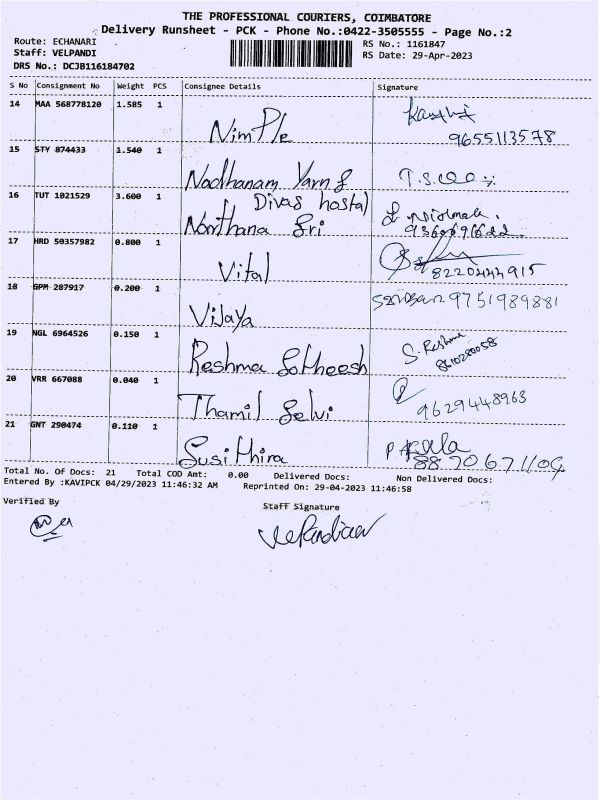 THE PROFESSIONAL COURIERS, COIMBATORE
Delivery Runsheet - PCK - Phone No.:0422-3505555 - Page No.:2
Route: ECHANARI
RS No.: 1161847
Staff: VELPANDI
RS Date: 29-Apr-2023
DRS No.: DCJB116184702
S No Consignment No Weight PCS Consignee Details Signature
14 MAA 568778120 1.585 1
Nimple 9655113578
15 STY 874433 1.540 1
Nadhanam Yarn &
16 TUT 1021529 3.600 1 Divas hostal
Nanthana Sri
17 HRD 50357982 0.800 1
Vital 8220444915
18 GPM 287917 0.200 1 9751989881
Vijaya
19 NGL 6964526 0.150 1 S. Reshma
Reshma Sotheesh 8610280058
20 VRR 667088 0.040 1
Thamil Selvi 9629448963
21 GNT 290474 0.110 1
Susithira
Total No. Of Docs: 21 Total COD Amt: 0.00 Delivered Docs: Non Delivered Docs:
Entered By :KAVIPCK 04/29/2023 11:46:32 AM Reprinted On: 29-04-2023 11:46:58
Verified By
Staff Signature